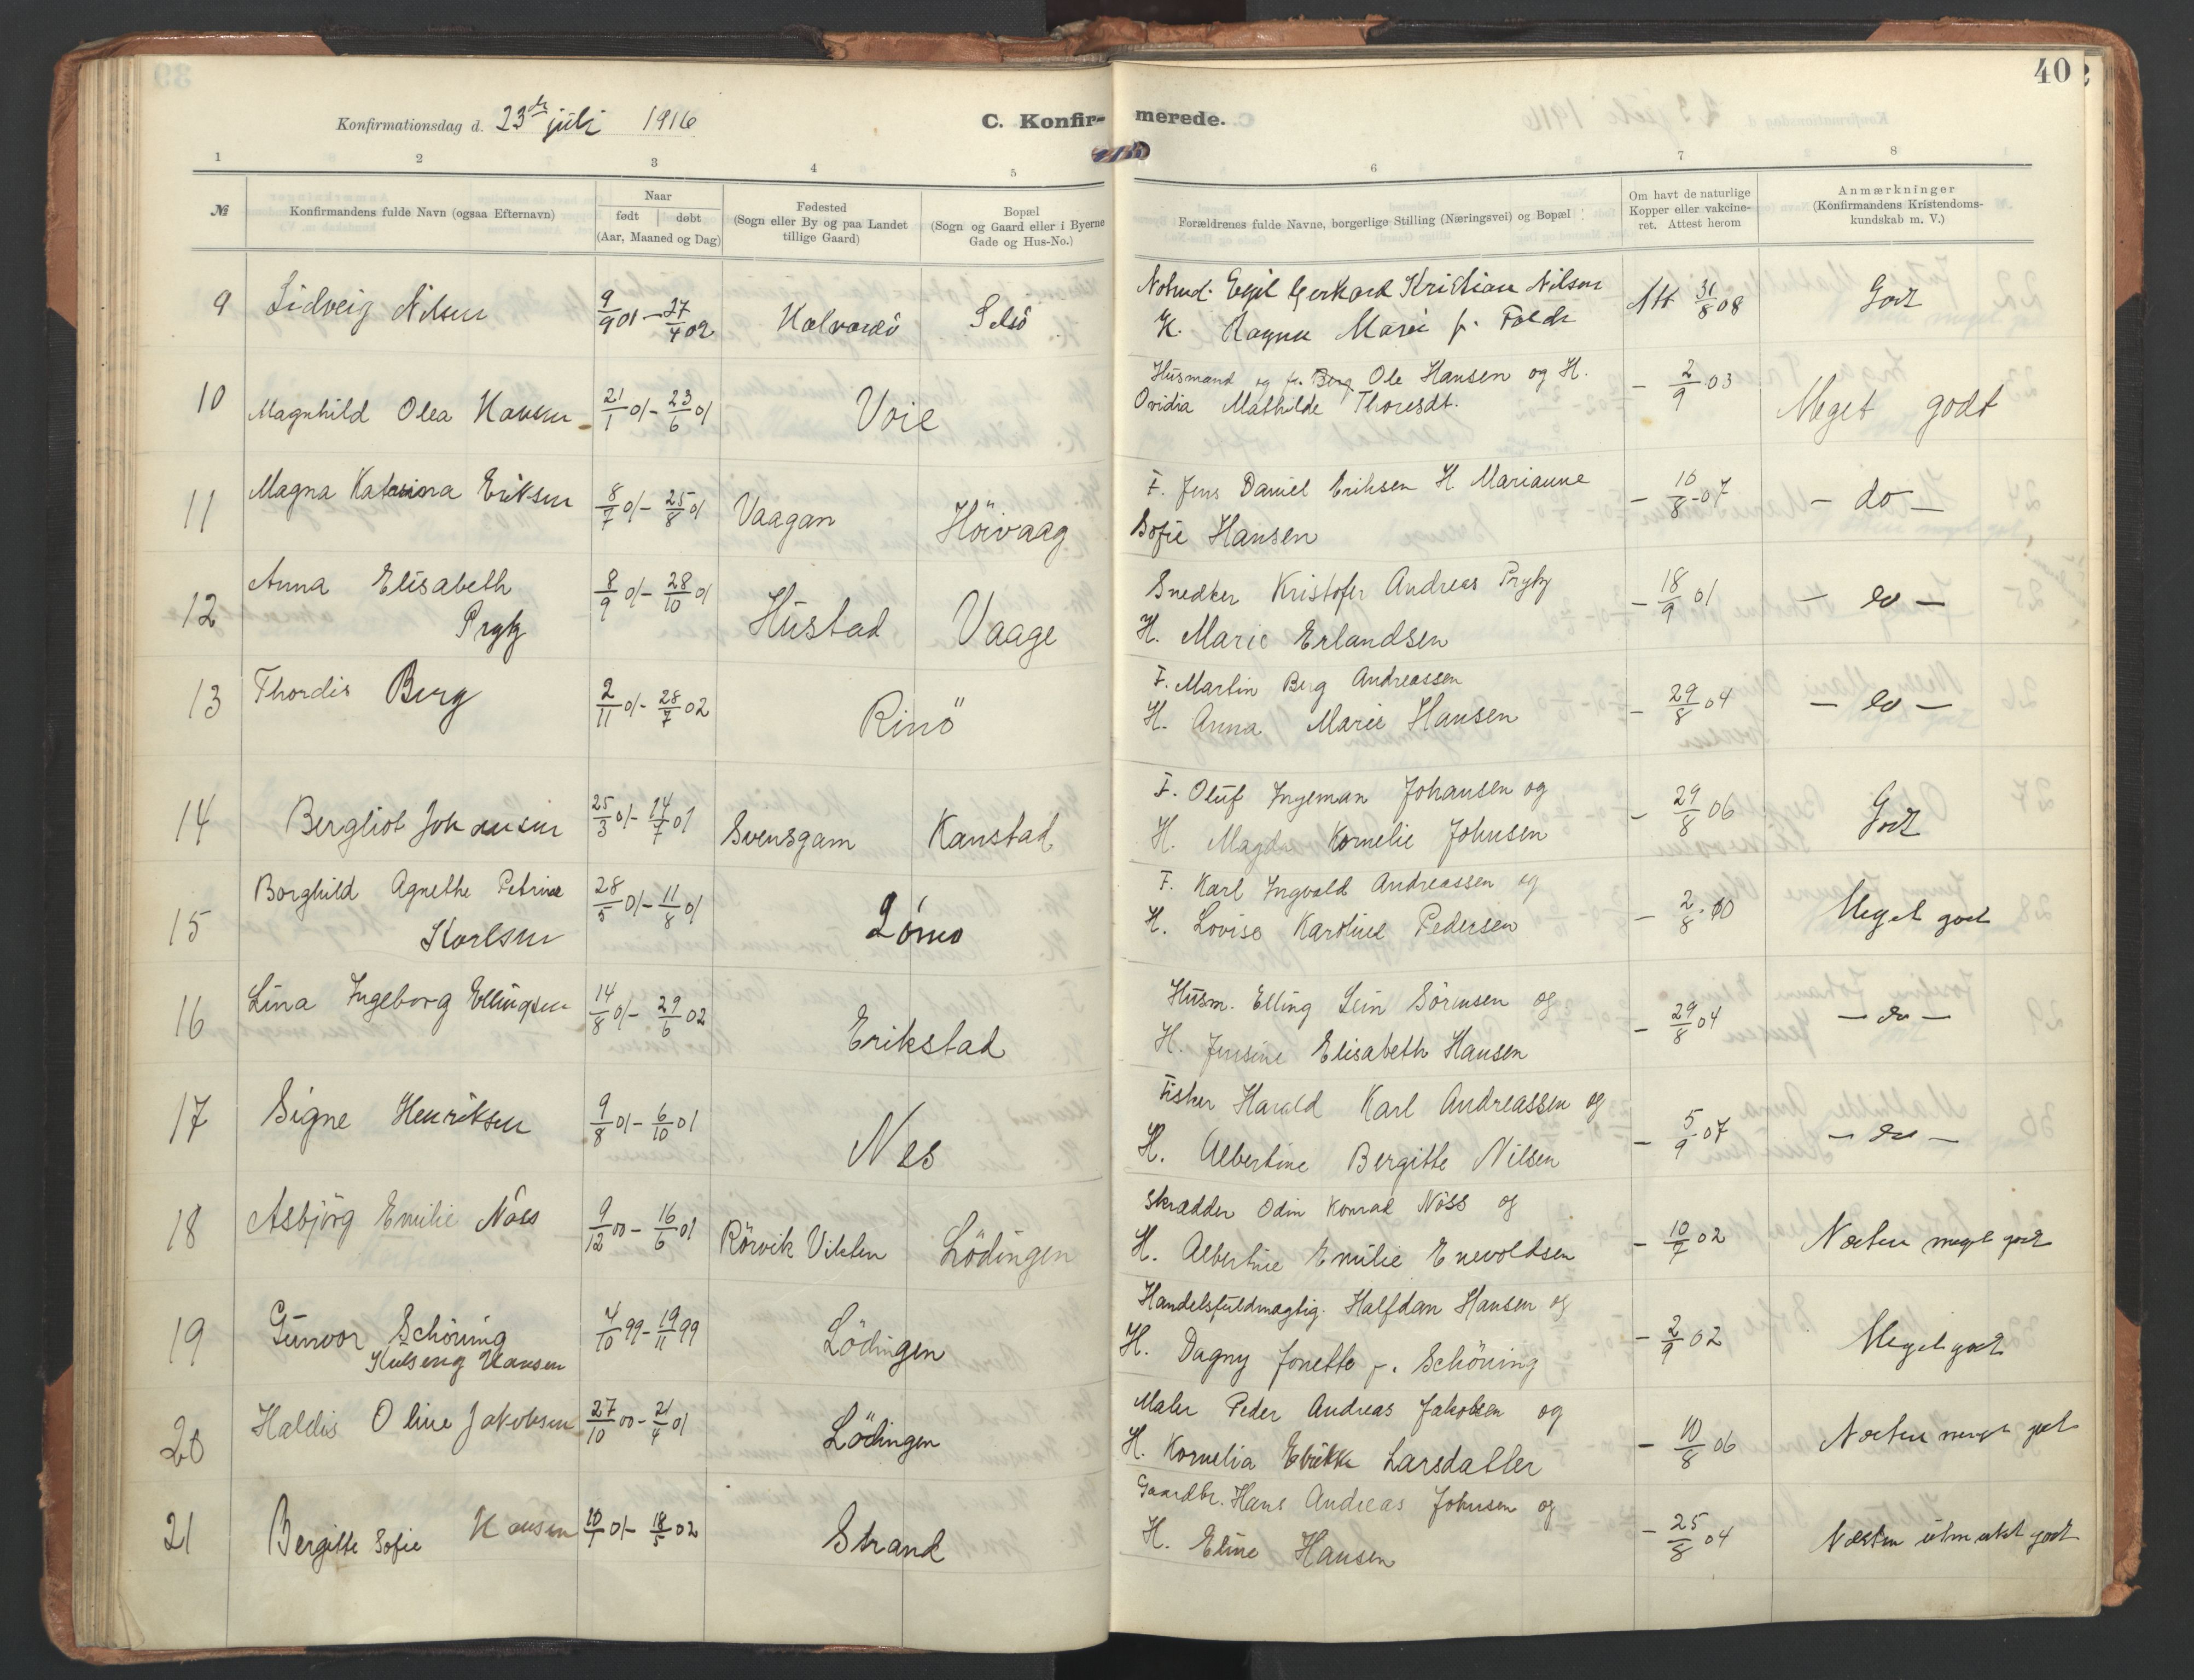 40
Konfirmationsdag d. 23de juli 1916
C. Konfir- merede.
1 2 3 4 5 6 7 8
№
Konfirmandens fulde Navn (ogsaa Efternavn)
Naar
født | døbt
(Aar, Maaned og Dag)
Fødested
(Sogn eller By og paa Landet
tillige Gaard)
Bopæl
(Sogn og Gaard eller i Byerne
Gade og Hus-No.)
Forældrenes fulde Navne, borgerlige Stilling (Næringsvei) og Bopæl
Om havt de naturlige
Kopper eller vakcine-
ret. Attest herom
Anmærkninger
(Konfirmandens Kristendoms-
kundskab m. V.)
9 Lidveig Nilsen 9/9 01 - 27/4 02 Selsö Egil Gerhard Kristian Nilsen Att 31/8 08 Godt
Ragna Marie f. Folde
10 Magnhild Olea Hansen 21/1 01 - 23/6 01 Voie Husmand og fi. Berg Ole Hansen og H. - 2/9 03 Meget godt
Ovidia Mathilde Thoresdt.
11 Magna Katarina Eriksen 8/7 01 - 25/8 01 Vaagan Höivaag F. Jens Daniel Eriksen H. Marianne - 10/8 07 - do -
Sofie Hansen
12 Anna Elisabeth 8/9 01 - 28/10 01 Hustad Vaage Snedker Kristofer Andreas Prytz - 18/9 01 - do -
Prytz H. Marie Erlandsen
13 Thordis Berg 2/11 01 - 28/7 02 Rinö F. Martin Berg Andreassen - 29/8 04 - do -
H. Anna Marie Hansen
14 Bergliot Johansen 25/3 01 - 14/7 01 Svensgam Kanstad F. Oluf Ingeman Johansen og - 29/8 06 Godt
H. Magda Kornelie Johnsen
15 Borghild Agnethe Petrine 28/5 01 - 11/8 01 Lómo F. Karl Ingvald Andreassen og - 2/8 10 Meget godt
Karlsen H. Lovise Karoline Pedersen
16 Lina Ingeborg Ellingsen 14/8 01 - 29/6 02 Erikstad Husm. Elling Lein Sörensen og - 29/8 04 - do -
H. Jensine Elisabeth Hansen
17 Signe Henriksen 9/8 01 - 6/10 01 Nes Fisker Harald Karl Andreassen og - 5/9 07 - do -
H. Albertine Bergitte Nilsen
18 Asbjörg Emilie Näss 9/12 00 - 16/6 01 Rörvik Vikten Lödingen Skrædder Odin Konrad Näss og - 10/7 02 Næsten meget godt
H. Albertine Emilie Enevoldsen
19 Gunvor Schöning 4/10 99 - 19/11 99 Lödingen Handelsfuldmægtig. Halfdan Hansen og - 2/9 02 Meget godt
Hansen H. Dagny Jonette f. Schöning
20 Haldis Oline Jakobsen 27/10 00 - 21/4 01 Lödingen Maler Peder Andreas Jakobsen og - 10/8 06 Næsten meget godt
H. Kornelia Larsdatter
21 Bergitte Sofie Hansen 01 - 18/5 02 Strand Gaardbr. Hans Andreas Johnsen og - 25/8 04 Næsten utmerket godt
H. Eline Hansen